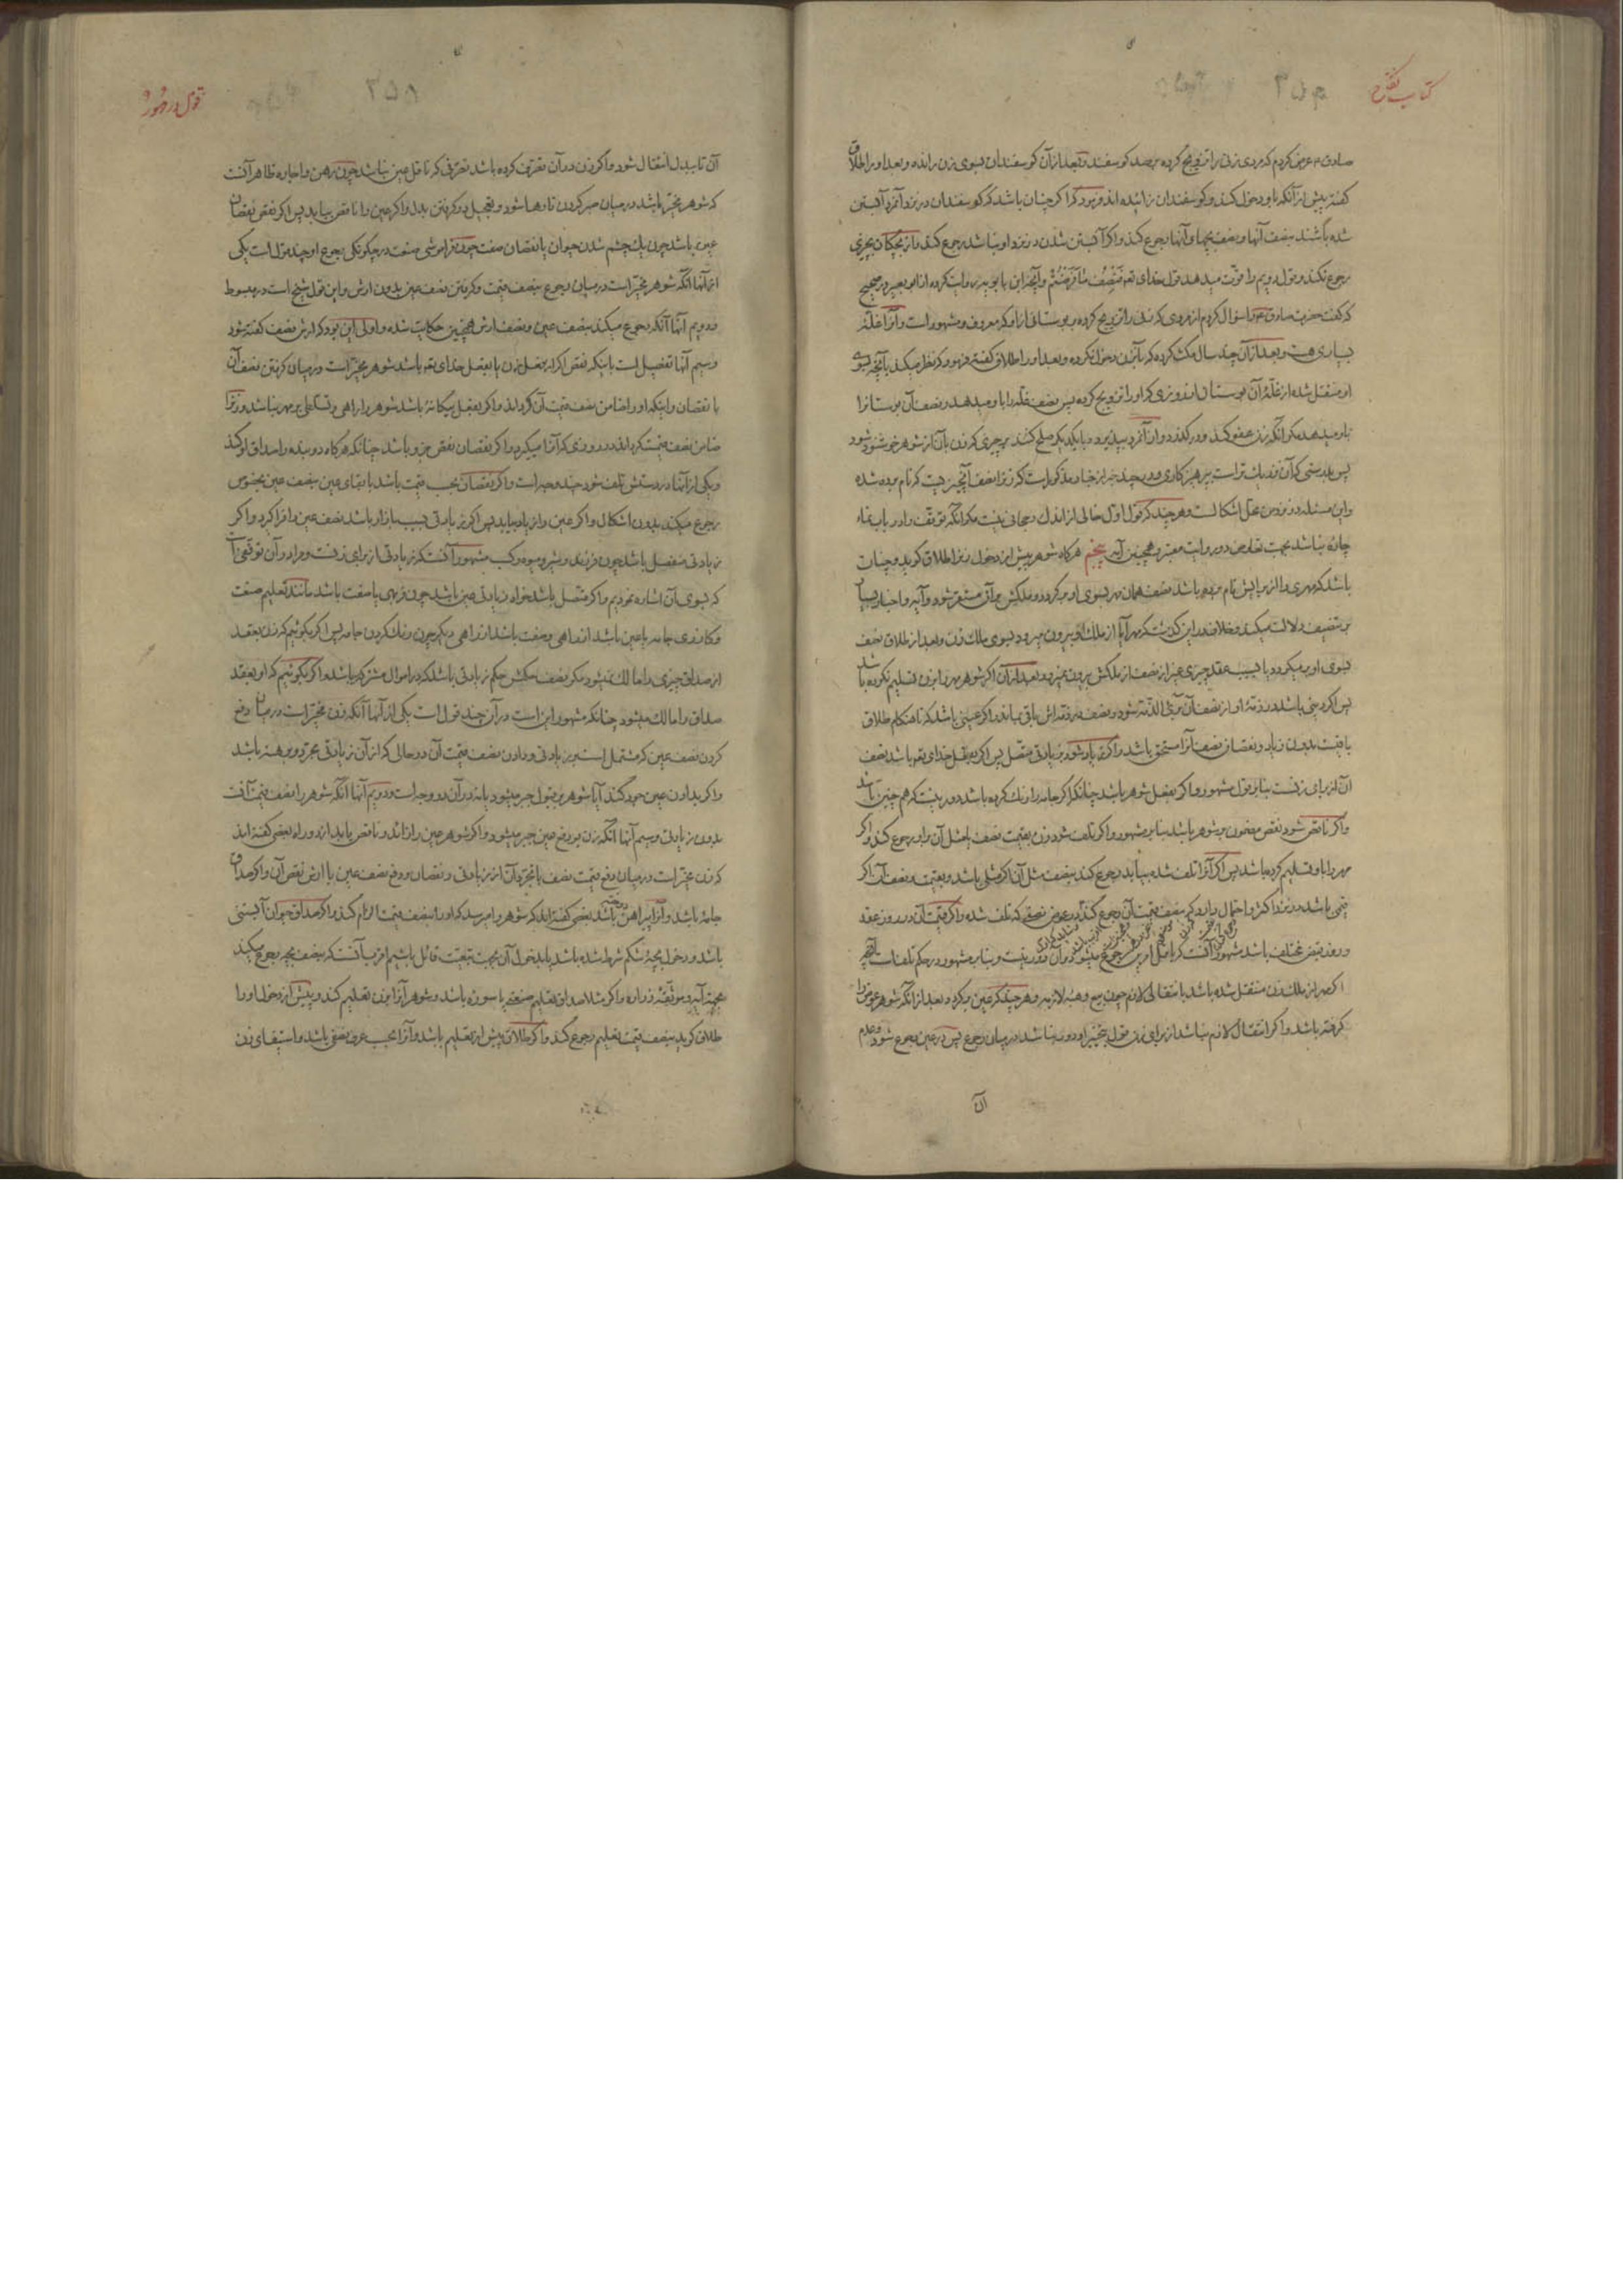 کتاب نکاح
صادق ۴ عرض کردم که مردی زنی را تزویج کرده بصد کوسفند و بعد از آن کوسفندان بسوی زن رانده و بعد او را طلاق
کفته پیش از آنکه باو دخول کند و کوسفندان زائیده اند فرمود که اکر چنان باشد که کوسفندان در نزد آنمرد آبستن
شده باشند بنصف آنها و بنصف بچها و آنها رجوع کند و اکر آبستن شدن در نزد او نباشد رجوع کند و از بچکان بچیزی
رجوع نکند و قول دویم را قوت میدهد قول خدای تعم فَنِصْفُ مٰا فَرَضْتُمْ و آنچه ابن بابویه روایت کرده از ابو بصیر در صحیح
که کفت حضرت صادق ۴ را سؤال کردم از مردی که زنی را تزویج کرده به بوستانی از او که معروف و مشهور است و آنرا غله
بسیاری هست و بعد از آن چند سال مکث کرده که بآنزن دخول نکرده و بعد او را طلاق کفته فرمود که نظر میکند بآنچه بسوی
او منتقل شده از غلهٔ آن بوستان از روزی که او را تزویج کرده پس نصف غله را باو میدهد و نصف آن بوستانرا
باو میدهد مکر آنکه زن عفو کند و در کذرد و آن آنمرد بپذیرد و با یکدیکر صلح کنند بر چیزی که زن بآن از شوهر خوشنود شود
پس بدرستی که آن نزدیک تر است بپرهیزکاری و در چند خبر از اخبار مذکور است که زنرا نصف آنچیزیست که نام برده شده
و این مسئله در نزد من محل اشکالست و هر چند که قول اول خالی از اندک رجحانی نیست مکر آنکه توقف را در باب نماء
چاره نباشد بجهت تعارض دو روایت معتبر و همچنین آیه پنجم هرکاه شوهر پیش از دخول زنرا طلاق کوید و چنان
باشد که مهری را از برایش نام برده باشد نصف همان مهر بسوی او بر کردد و ملکش بر آن مستقر شود و آیه و اخبار بسیار
بر تنصیف دلالت میکند و خلاف در این کذشت که مهر آیا از ملک او بیرون میرود بسوی ملک زن و بعد از طلاق نصف
بسوی او بر میکردد یا بسبب عقد چیزی غیر از نصف از ملکش بیرون نمیرود بعد از آن اکر شوهر مهر را بزن تسلیم نکرده باشد
پس اکر دینی باشد در ذمهٔ او از نصف آن بری الذمه شود و نصف در ذمه اش باقی بماند و اکر عینی باشد که تا هنکام طلاق
باقیست بدون زیاد و نقصان نصف آنرا مستحق باشد و اکر زیاد شود بزیادتی متصل پس اکر بفعل خدای تعم باشد نصف
آن از برای زنست بنا بر قول مشهور و اکر بفعل شوهر باشد چنانکه اکر جامه را رنک کرده باشد دور نیست که هم چنین باشد
و اکر ناقص شود نقص مضمون بر شوهر باشد بنا بر مشهور و اکر تلف شود زن بقیمت نصف یا مثل آن باو رجوع کند و اکر
مهر را باو تسلیم کرده باشد پس اکر آنرا تلف شده بیابد رجوع کند بنصف مثل آن اکر مثلی باشد و بقیمت و نصف آن اکر
قیمی باشد در نزد اکثر و احتمال دارد که بنصف قیمت آن رجوع کند در عوض نصفی که تلف شده و اکر قیمت آن در روز عقد
و روز قبض مختلف باشد مشهور آنست که باقل امرین رجوع میشود و آن دور نیست و بنا بر مشهور در حکم تلفست آنچه
اکر از ملک زن منتقل شده باشد بانتقالی لازم چون بیع و هبهٔ لازمه و هر چند که عین بر کردد بعد از آنکه شوهر عوض را
کرفته باشد و اکر انتقال لازم نباشد از برای زن قول بتخییر او دور نباشد در میان رجوع پس در عین رجوع شود و عدم
آن
قول در مهور
۳۵۸
آن تا ببدل انتقال شود و اکر زن در آن تصرف کرده باشد تصرفی که ناقل عین نباشد چون رهن و اجاره ظاهر آنست
که شوهر مخیر باشد در میان صبر کردن تا رها شود و تعجیل در کرفتن بدل و اکر عین را ناقص بیابد پس اکر نقص نقصان
عین باشد چون یک چشم شدن حیوان یا نقصان صفت چون فراموشی صنعت در چکونکی رجوع او چند قول است یکی
از آنها آنکه شوهر مخیر است در میان رجوع بنصف قیمت و کرفتن نصف عین بدون ارش و این قول شیخ است در مبسوط
و دویم آنها آنکه رجوع میکند بنصف عین و نصف ارش همچنین حکایت شده و اولی این بود که ارش نصف کفته شود
و سیم آنها تفصیل است باینکه نقص اکر بفعل زن یا بفعل خدای تعم باشد شوهر مخیر است در میان کرفتن نصف آن
با نقصان و اینکه او را ضامن نصف قیمت آن کرداند و اکر بفعل بیکانهٔ باشد شوهر را راهی و تسلطی بر مهر نباشد و زنرا
ضامن نصف قیمت کرداند در روزی که آنرا میکیرد و اکر نقصان نقص جزو باشد چنانکه هرکاه دو بنده را صداق او کند
و یکی از آنها در دستش تلف شود چند وجه است و اکر نقصان بحسب قیمت باشد با بقای عین بنصف عین بخصوص
رجوع میکند بدون اشکال و اکر عین را زیاد بیابد پس اکر زیادتی بسبب بازار باشد نصف عین را فرا کیرد و اکر
زیادتی منفصل باشد چون فرزند و شیر و میوه و کسب مشهور آنست که زیادتی از برای زنست و مرا در آن توقفی است
که بسوی آن اشاره نمودیم و اکر متصل باشد خواه زیادتی عین باشد چون فربهی یا صفت باشد مانند تعلیم صنعت
و کازری جامه یا عین باشد از راهی و صفت باشد از راهی دیکر چون رنک کردن جامه پس اکر بکوئیم که زن بعقد
از صداق چیزی را مالک نمیشود مکر نصف حکمش حکم زیادتی باشد که در اموال مشترکه باشد و اکر بکوئیم که او بعقد
صداق را مالک میشود چنانکه مشهور این است در آن چند قول است یکی از آنها آنکه زن مخیر است در میان دفع
کردن نصف عین که مشتمل است بر زیادتی و دادن نصف قیمت آن در حالی که از آن زیادتی مجرد و برهنه باشد
و اکر بدادن عین جود کند آیا شوهر بر قبول جبر میشود یا نه در آن دو وجه است و دویم آنها آنکه شوهر را نصف قیمت آنست
بدون زیادتی و سیم آنها آنکه زن بر دفع عین جبر میشود و اکر شوهر عین را زائد و ناقص یابد از دو راه بعضی کفته اند
که زن مخیر است در میان دفع قیمت نصف با تجرد آن از زیادتی و نقصان و دفع نصف عین با ارش نقص آن و اکر صداق
جامهٔ باشد و آنرا پیراهن دوخته باشد بعضی کفته اند که شوهر را میرسد که او را بنصف قیمت الزام کند و اکر صداق حیوان آبستنی
باشد و دخول بچهٔ شکم شرط شده باشد یا بدخول آن بجهت تبعیت قائل باشیم اقرب آنست که بنصف بچه رجوع میکند
بجهة آیه و موثّقهٔ زراره و اکر مثلا صداق تعلیم صنعتی یا سورهٔ باشد و شوهر آنرا بزن تعلیم کند و پیش از دخول او را
طلاق کوید بنصف قیمت تعلیم رجوع کند و اکر طلاق پیش از تعلیم باشد و آنرا بحسب عرف نصفی باشد و استیفای زن